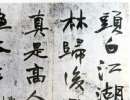 頭白江湖
林歸後
真是高人